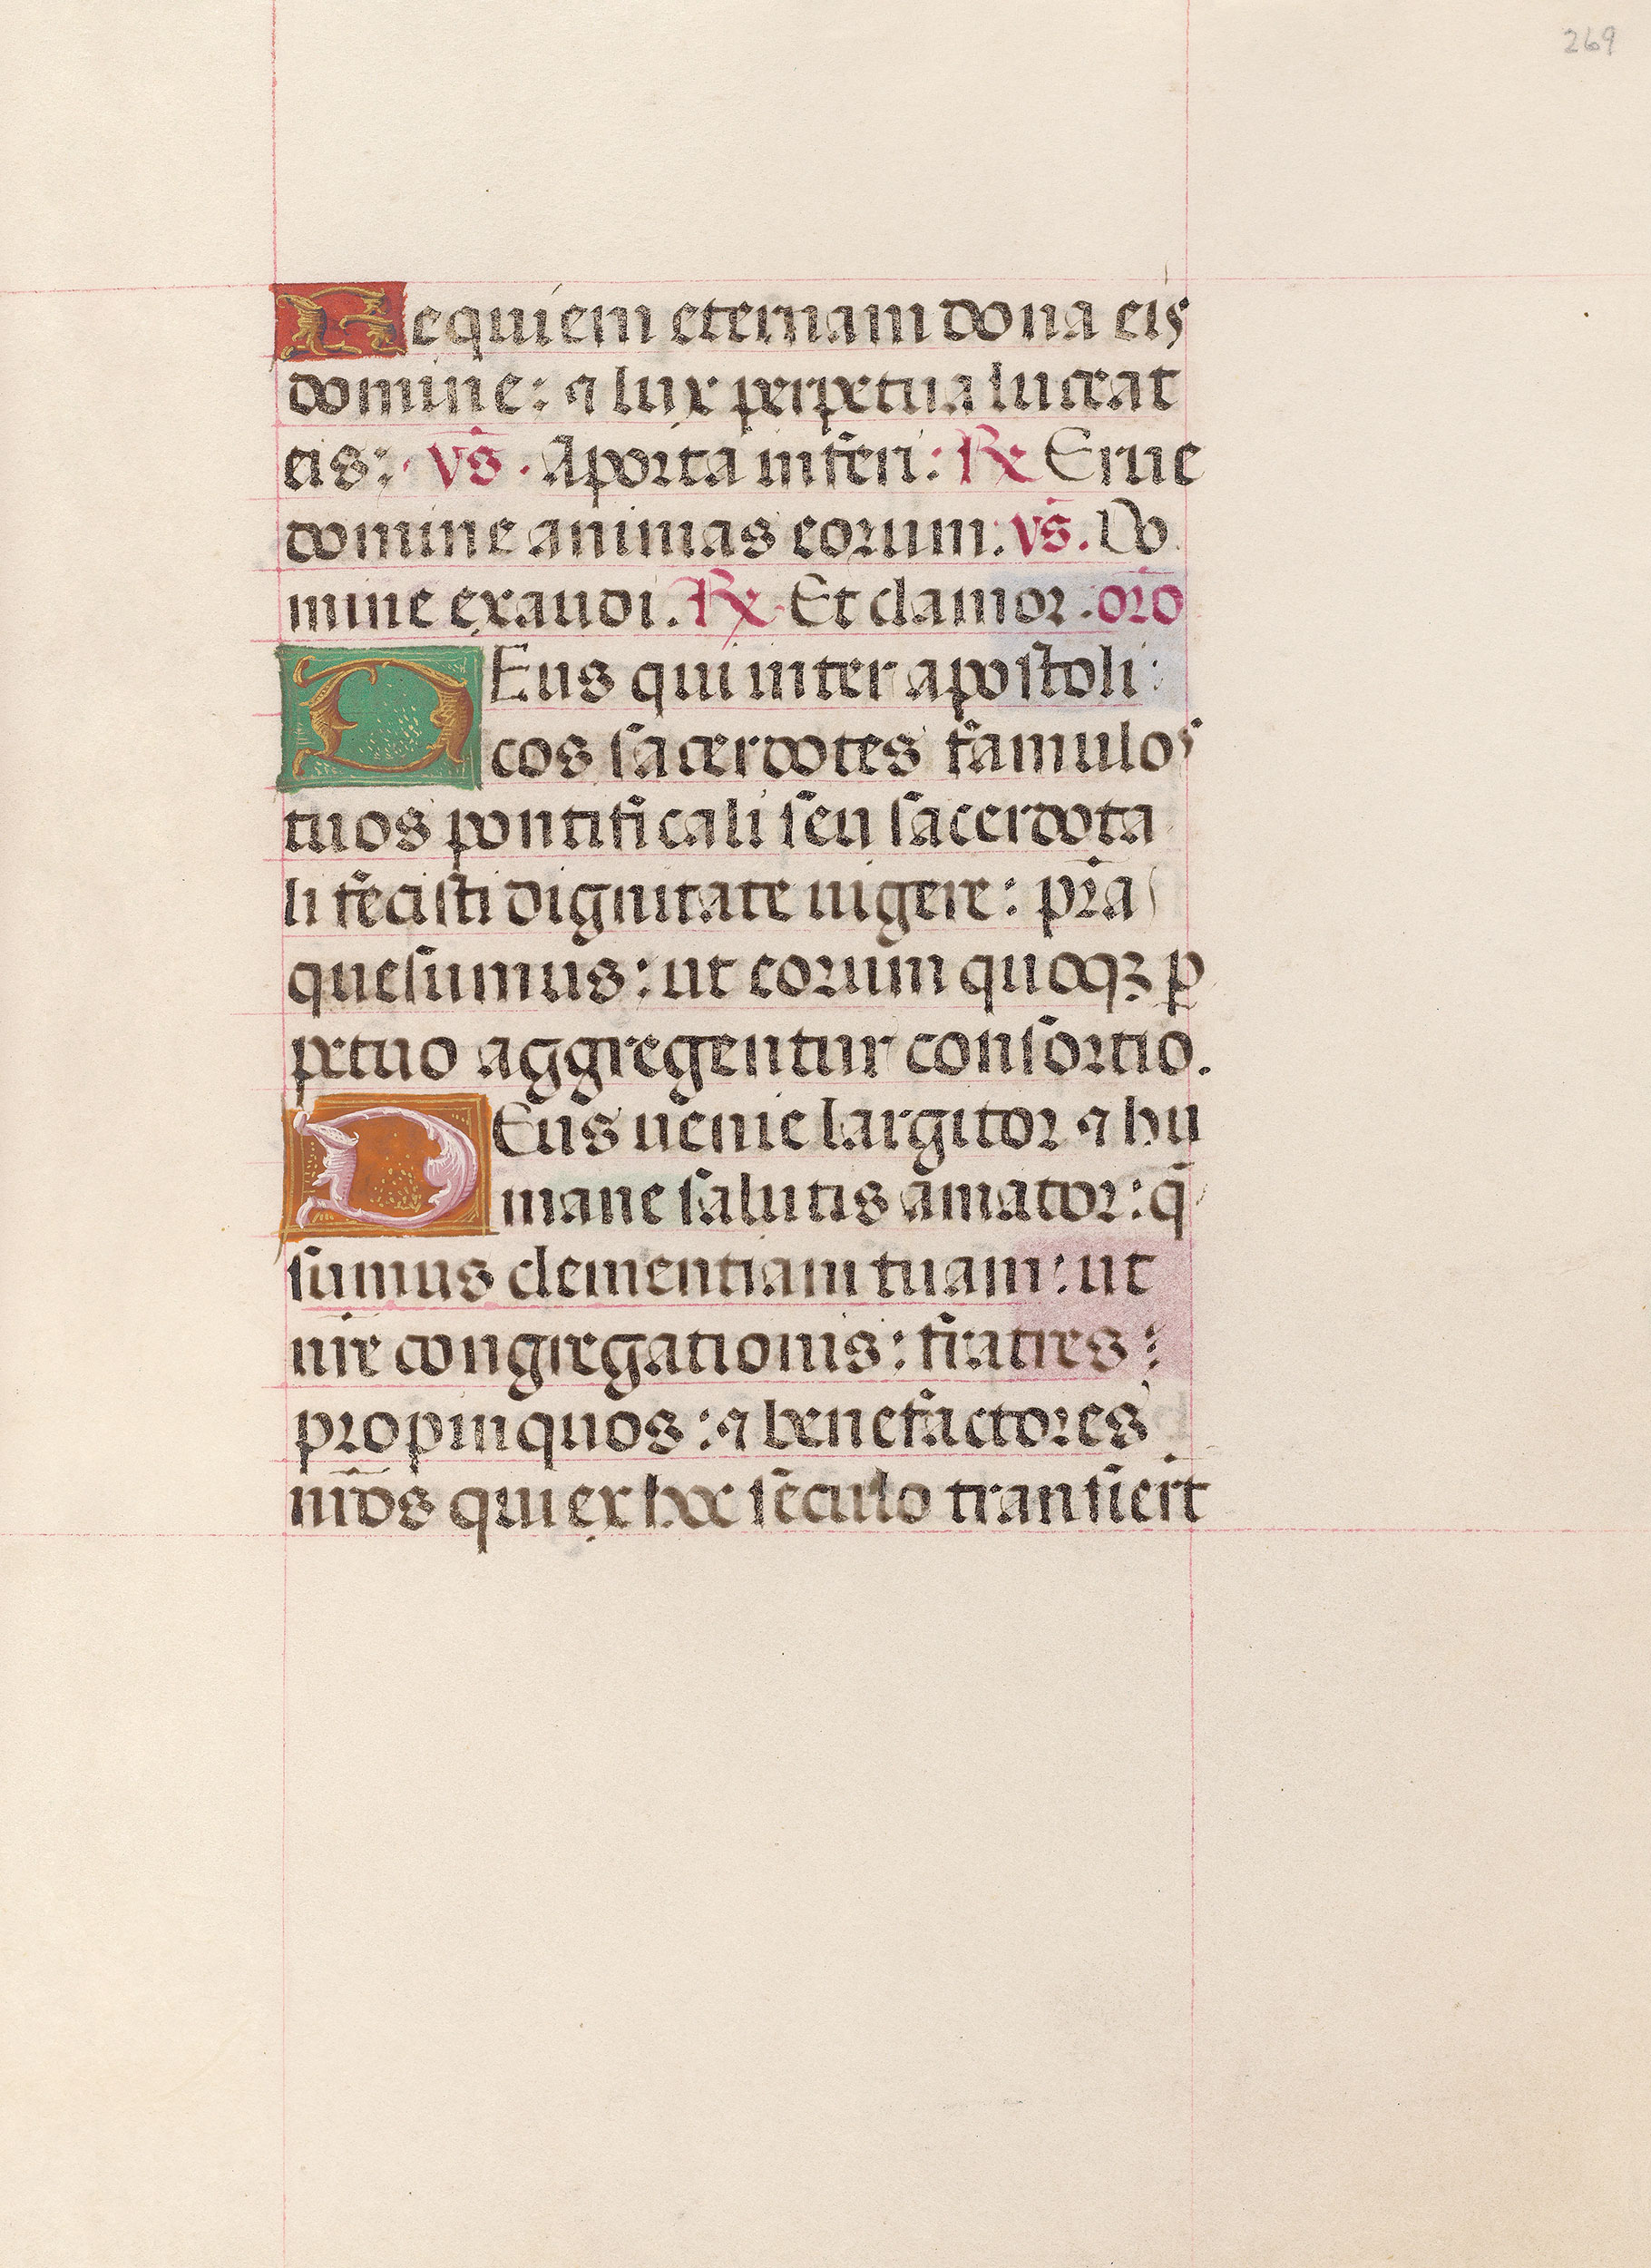 269
Requiem eternam dona eis
domine: ⁊ lux perpetua luceat
eis: vs̄. A porta inferi: ℟ Erue
domine animas eorum: vs̄. Do
mine exaudi. ℟ Et clamor. or̄o
DEus qui inter apostoli
cos sacerdotes famulos
tuos pontificali seu sacerdota
li fecisti dignitate uigere: pr̄a
quesumus: ut eorum quoqꝫ ꝑ
petuo aggregentur consortio.
DEus uenie largitor ⁊ hu
mane salutis amator: q̄
sumus clementiam tuam: ut
nr̄e congregationis: fratres:
propinquos: ⁊ benefactores
nr̄os qui ex hoc seculo transiert